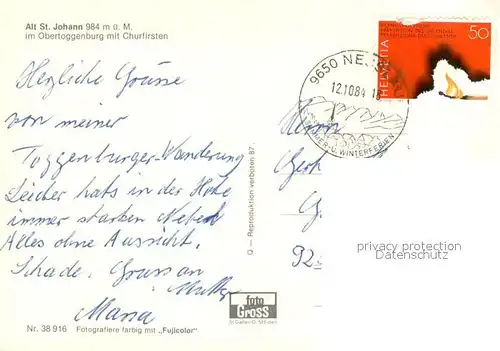 Alt St. Johann 984 m ü. M.
im Obertoggenburg mit Churfirsten
Herzliche Grüsse
von meiner
Toggenburger-Wanderung
Leider hats in der Höhe
immer starken Nebel
Alles ohne Aussicht.
Schade. Gruss an
Mutter
Maria
Nr. 38 916 Fotografiere farbig mit „Fujicolor"
Q – Reproduktion verboten 87
foto
GROSS
St. Gallen
HELVETIA
50
9650 NE
12.10.84
SOMMER- U. WINTERFERIEN
Herrn
G.
92
privacy protection
Datenschutz